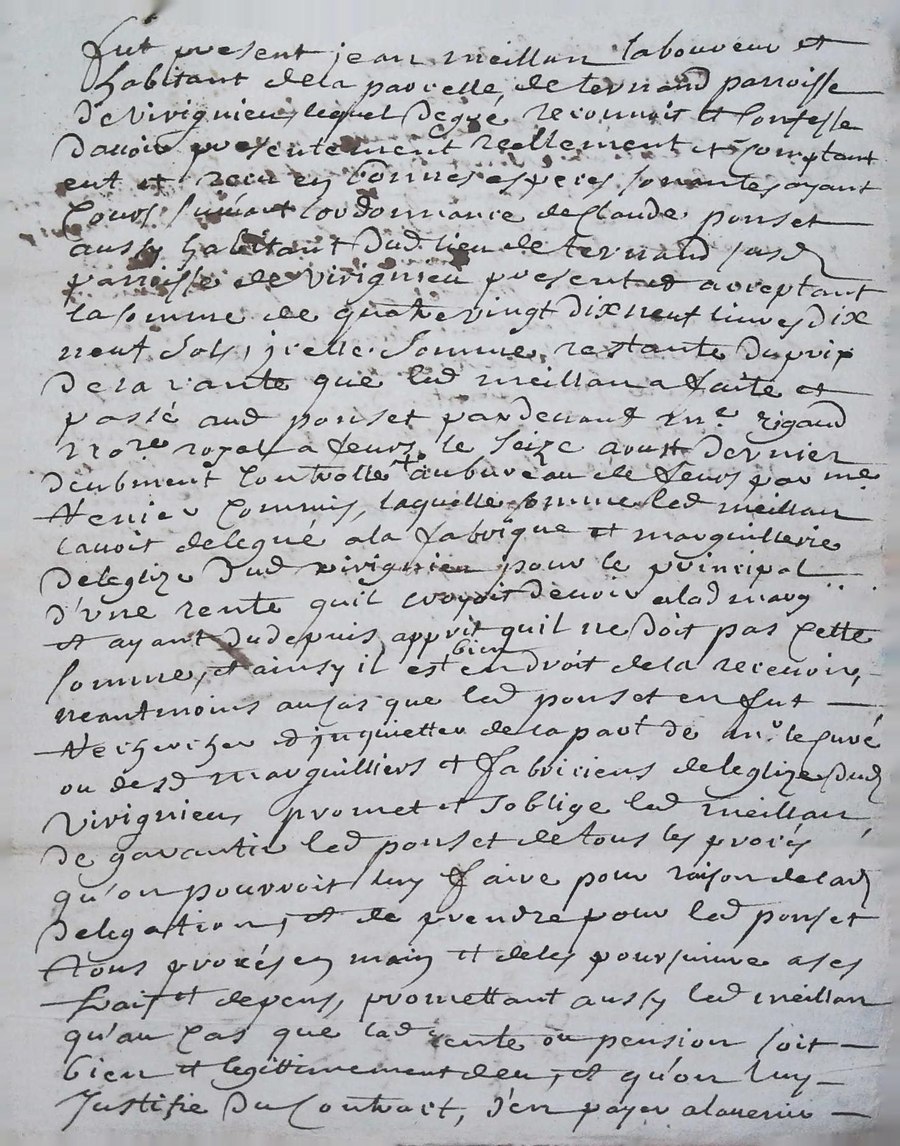 fut present jean meillan laboureur et
habitant dela parcelle de ternand parroisse
de virignieu, lequel degré reconnoit et confesse
davoir presentement reellement et comptant
eut et receu en bonnes especes sonantes ayant
cours suivant lordonnance de Claude ponset
aussy habitant dud lieu de ternand susd
parroisse de virignieu present et acceptant
la somme de quatre vingt dix neuf livres dix
neuf sols, jcelle somme, restante du prix
de la vante que led meillan a faite et
passé aud ponset pardevant me. rigaud
nore royal a feurs le seize aoust dernier
deubment controllé au bureau de feurs par me
Commis, laquelle somme led meillan
lavoit delegué ala fabrique et marguillerie
deleglize dud virignieu pour le principal
d'vne rente quil croyoit devoir alad marg
et ayant dudepuis apprit quil ne doit pas cette
somme, et ainsy il est bien endroit de la recevoir,
neantmoins aucas que led ponset en fut
rechercher et jnquietter dela part de mr. le curé
ou desd marguilliers et fabriciens deleglize dud
virignieu promet et soblige led meillan
de garantir led ponset de tous les procés
qu'on pourroit luy faire pour raison de lad
delegation, et de prendre pour led ponset
tous procés en main et deles poursuivre a ses
frait et depens, promettant aussy led meillan
qu'au cas que lad rente ou pension soit
bien et legittimement deu, et qu'on luy
justifie du contract, d'en payer alavenir